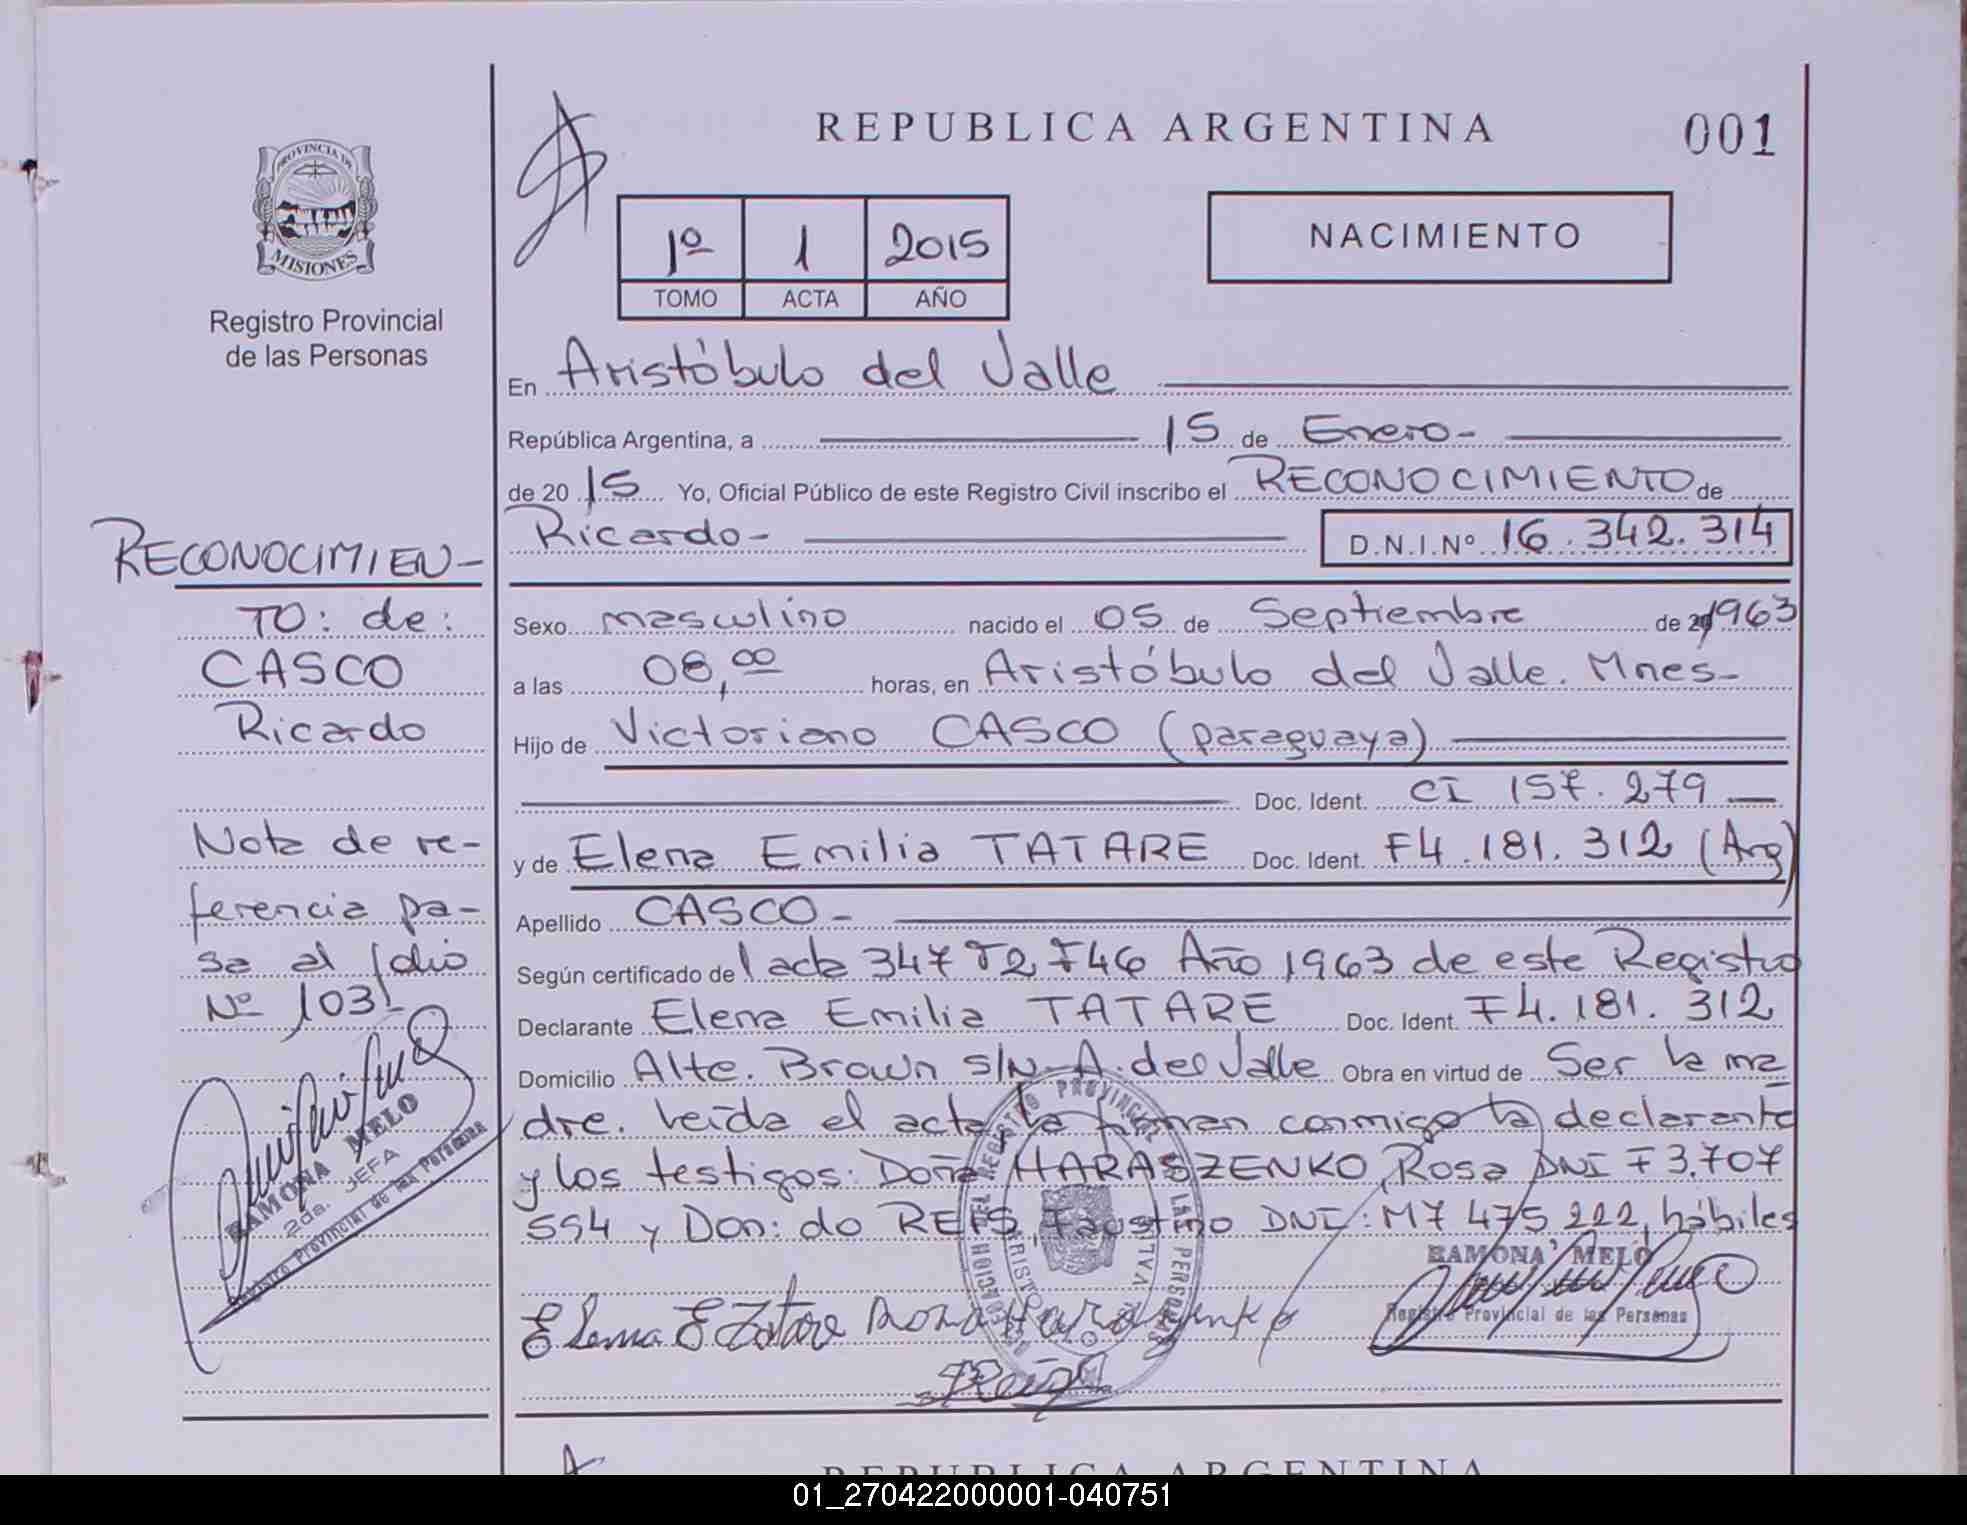 REPUBLICA ARGENTINA
001
PROVINCIA DE
MISIONES
Registro Provincial
de las Personas
1º 1 2015
TOMO ACTA AÑO
NACIMIENTO
En Aristóbulo del Valle
República Argentina, a 15 de Enero-
de 20 15 Yo, Oficial Público de este Registro Civil inscribo el RECONOCIMIENTO de
Ricardo- D.N.I.Nº 16.342.314
RECONOCIMIEN-
TO: de:
CASCO
Ricardo
Nota de re-
ferencia pa-
sa al folio
Nº 103
RAMONA MELO
2da. JEFA
Registro Provincial de las Personas
Sexo masculino nacido el 05 de Septiembre de 1963
a las 08,00 horas, en Aristóbulo del Valle. Mnes-
Hijo de Victoriano CASCO (paraguaya)
Doc. Ident. CI 157.279
y de Elena Emilia TATARE Doc. Ident. F4.181.312 (Arg)
Apellido CASCO-
Según certificado de l acta 347 T2, F46 Año 1963 de este Registro
Declarante Elena Emilia TATARE Doc. Ident. F4.181.312
Domicilio Alte. Brown s/N- A. del Valle Obra en virtud de Ser la ma
dre. Leída el acta, la firman conmigo la declarante
y los testigos: Doña HARASZENKO, Rosa DNI F3.707
594 y Don: do REIS, Faustino DNI: M7 475 222, hábiles
RAMONA MELO
Registro Provincial de las Personas
Elena E Tatare Rosa Haraszenko
Reis
REPUBLICA ARGENTINA
01_270422000001-040751